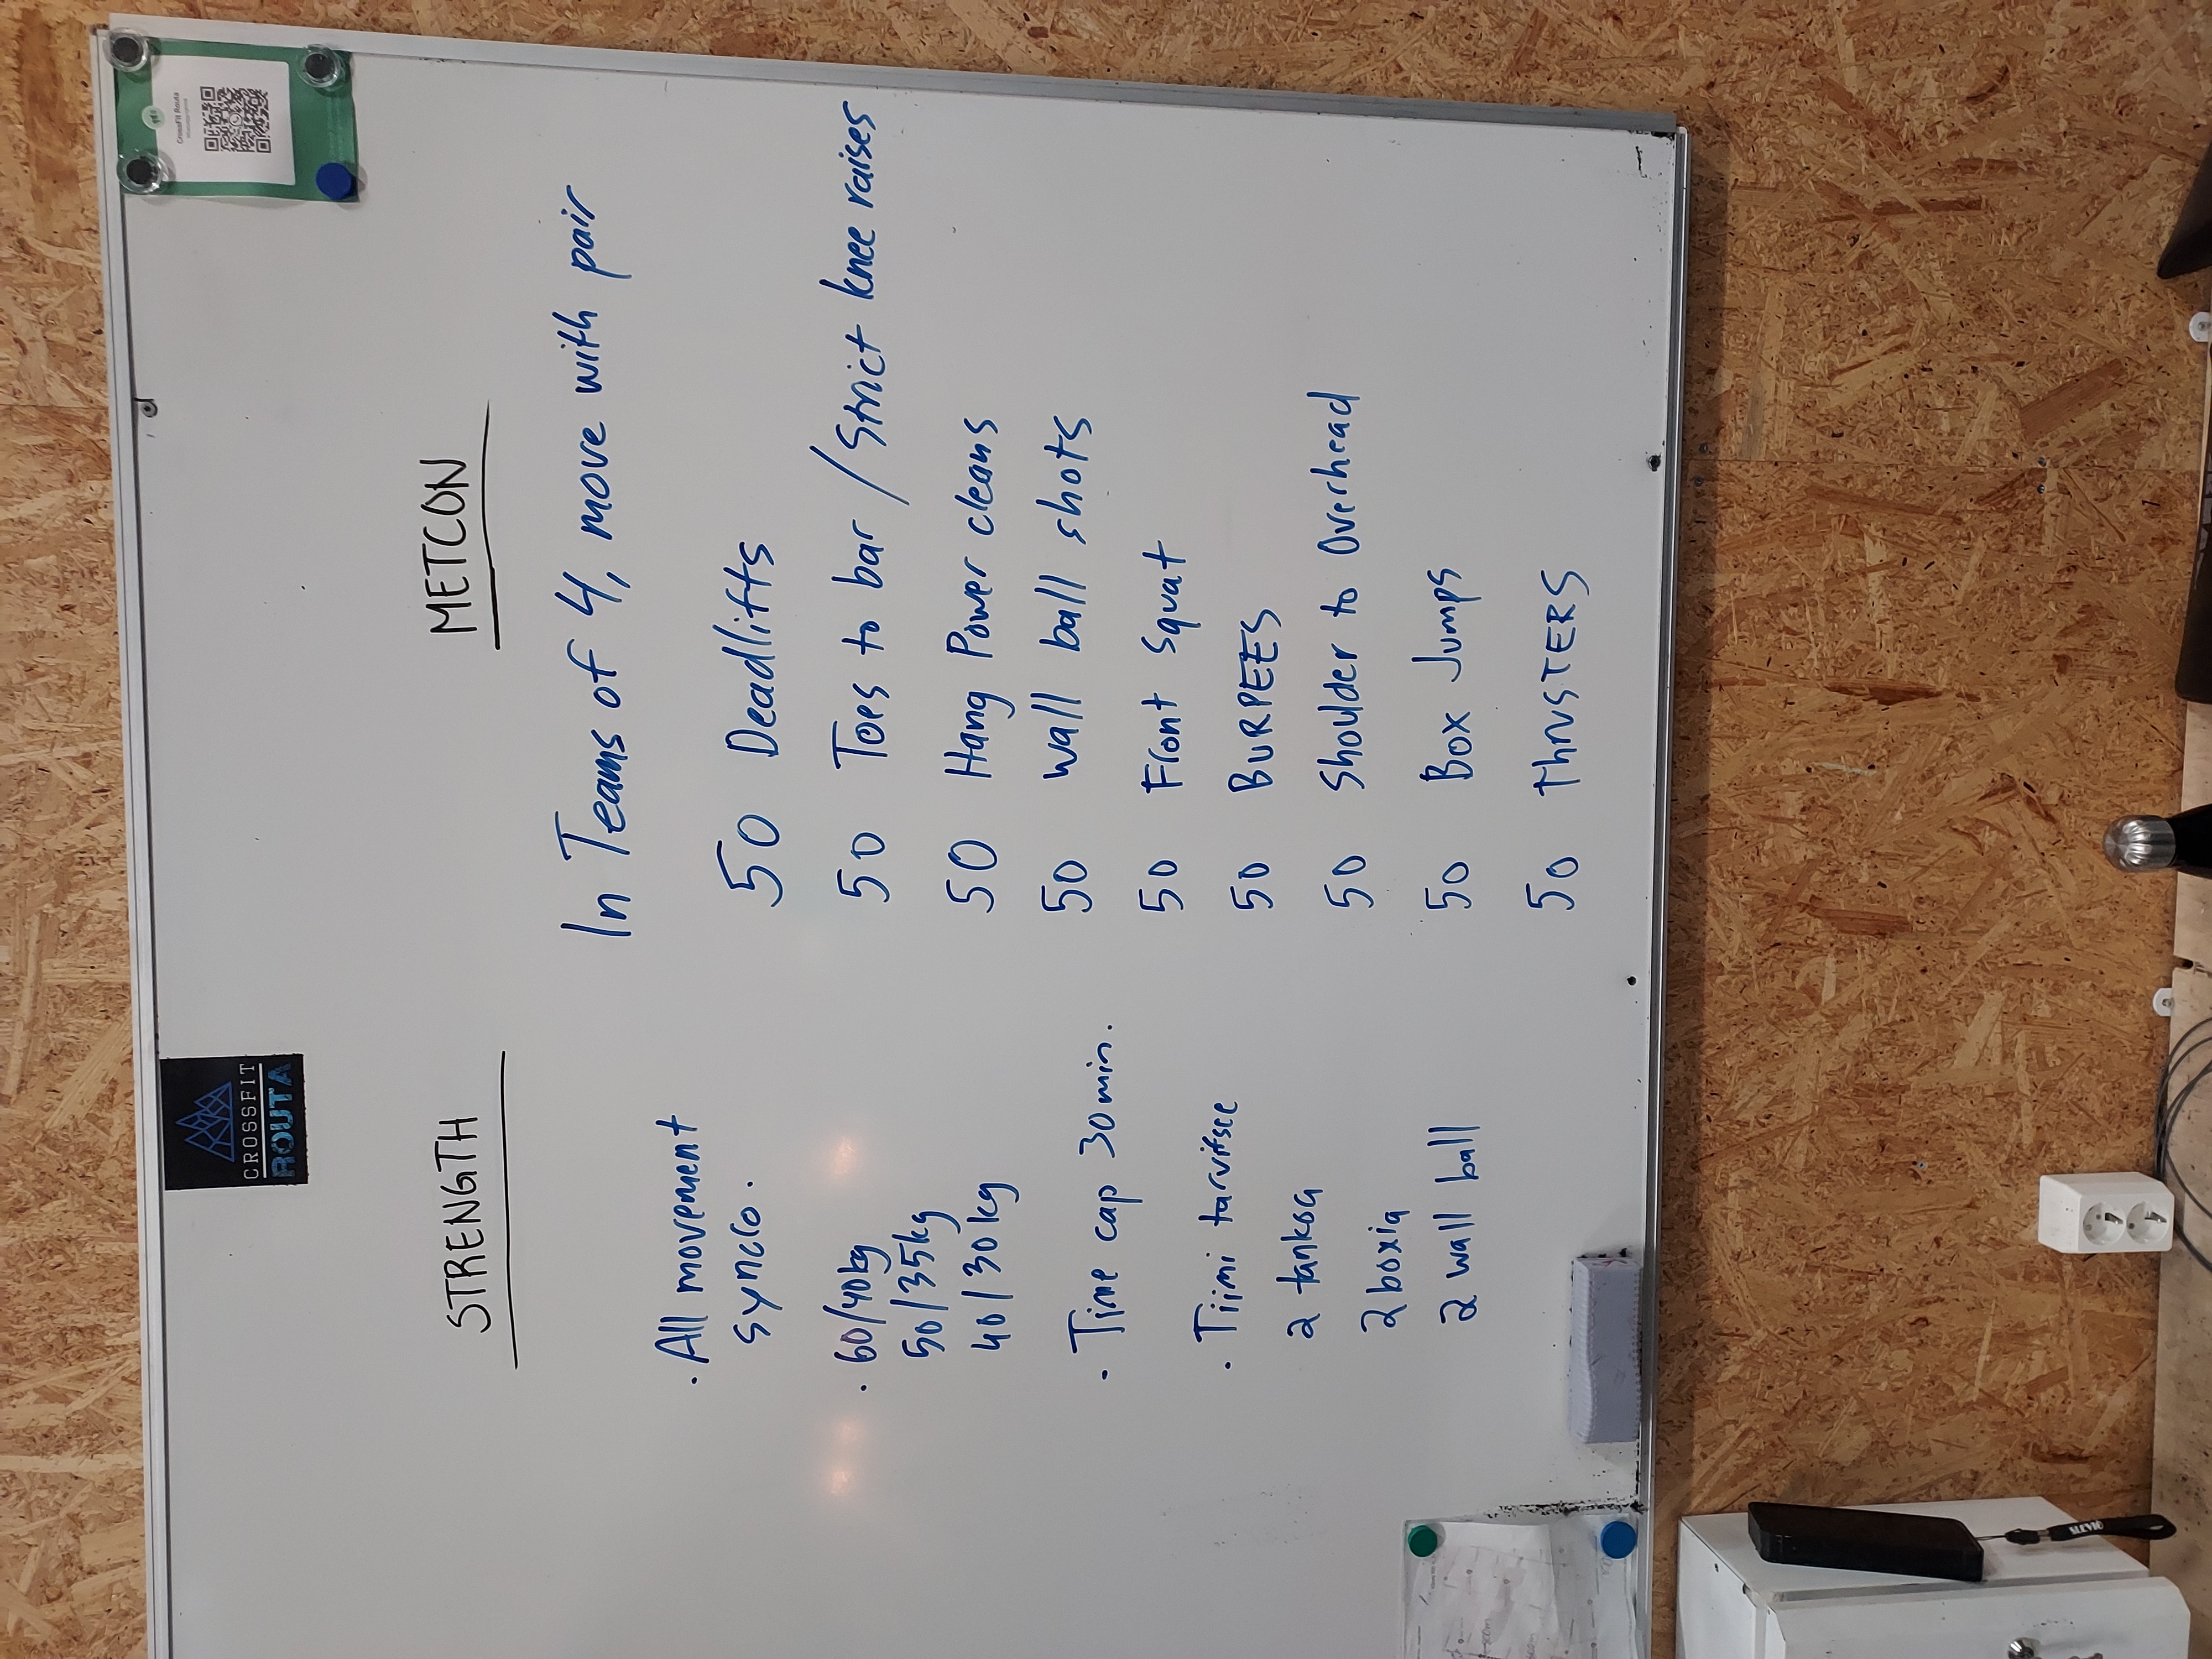 CROSSFIT
ROUTA
CrossFit Routa
STRENGTH
· All movement
syncro.
· 60/40kg
50/35kg
40/30kg
· Time cap 30min.
· Tiimi tarvitsee
2 tankoa
2 boxia
2 wall ball
METCON
In Teams of 4, move with pair
50 Deadlifts
50 Toes to bar / Strict knee raises
50 Hang Power cleans
50 wall ball shots
50 Front Squat
50 BURPEES
50 Shoulder to Overhead
50 Box Jumps
50 ThruSTERS